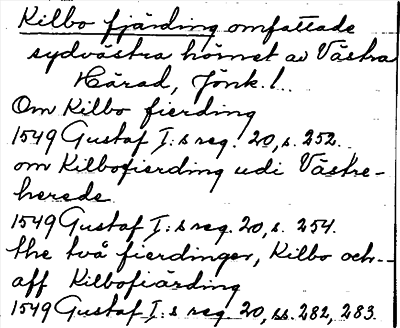 Kilbo fjärding omfattade
sydvästra hörnet av Västra
Härad, Jönk. l.
Om Kilbo fierding
1549 Gustaf I:s reg. 20, s. 252.
om Kilbofierding udi Västre-
herede
1549 Gustaf I:s reg. 20, s. 254.
the två fierdinger, Kilbo och
aff Kilbofiärding
1549 Gustaf I:s reg. 20, ss. 282, 283.